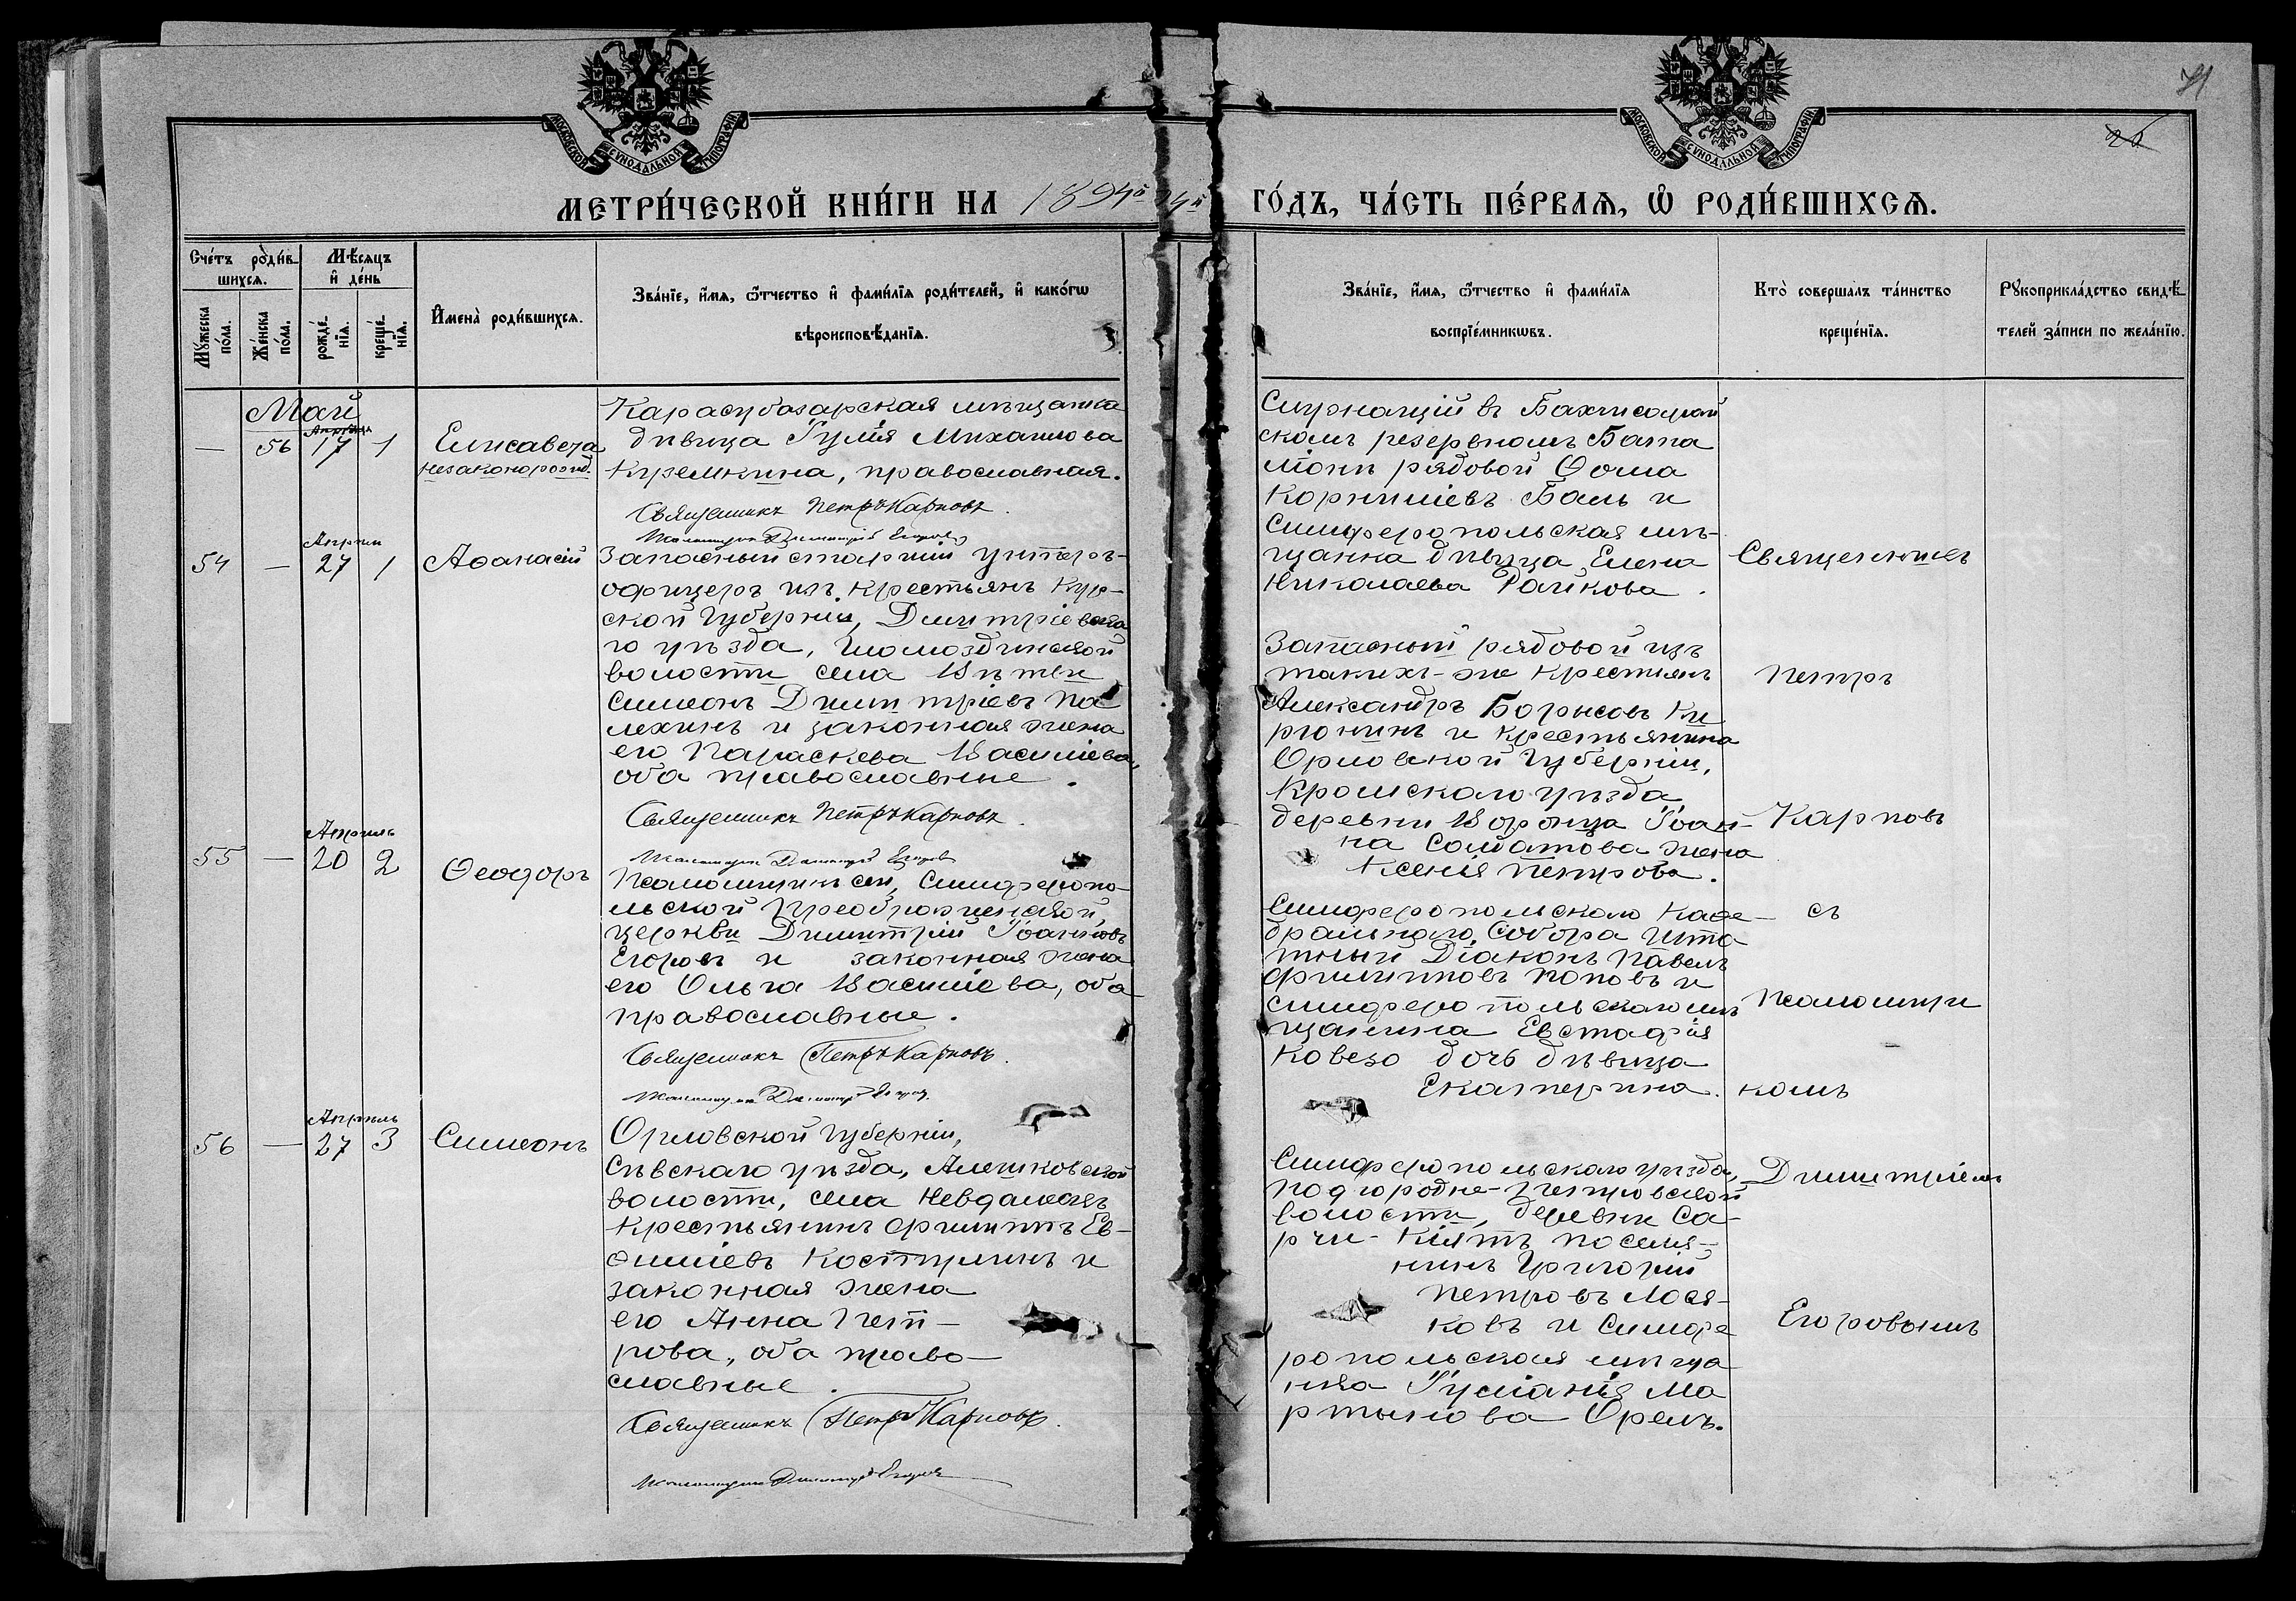 71
20
МОСКОВСКОЙ СѴНОДАЛЬНОЙ ТИПОГРАФІИ
МОСКОВСКОЙ СѴНОДАЛЬНОЙ ТИПОГРАФІИ
МЕТРИ́ЧЕСКОЙ КНИ́ГИ НА 1894й
ГО́ДЪ, ЧА́СТЬ ПЕ́РВАѦ, Ѡ҆ РОДИ́ВШИХСѦ.
Сче́тъ роди́в-
шихсѧ.
Мꙋ́жеска по́ла.
Же́нска по́ла.
Мѣ́сѧцъ
и҆ де́нь
рожде́нїѧ.
креще́нїѧ.
И҆мена̀ роди́вшихсѧ.
Зва́нїе, и҆́мѧ, ѻ҆́тчество и҆ фами́лїѧ роди́телей, и҆ како́гѡ
вѣроисповѣ́данїѧ.
Зва́нїе, и҆́мѧ, ѻ҆́тчество и҆ фами́лїѧ
воспрїе́мникѡвъ.
Кто̀ совершалъ та́инство
креще́нїѧ.
Рꙋкоприкла́дство свидѣ́-
телей за́писи по жела́нїю.
Май
— 56 Апрѣля 17 1
Елисавета
незаконорожд.
Карасубазарская мѣщанка
дѣвица Іулія Михаилова
Кремкина, православная.
Священникъ Петръ Карповъ.
Псаломщикъ Димитрій Егоровъ
Служащій въ Бахчисарай
скомъ резервномъ Бата
ліонѣ рядовой Ѳома
Корниліевъ Баль и
Симферопольская мѣ-
щанка дѣвица Елена
Николаева Райкова.
54 — Апрѣля 27 1
Аѳанасій
Запасный старшій унтеръ-
офицеръ изъ крестьянъ Кур-
ской губерніи, Димитріевска
го уѣзда,
волости села
Симеонъ Димитріевъ Па
лехинъ и законная жена
его Параскева Василіева,
оба православные.
Священникъ Петръ Карповъ.
Псаломщикъ Димитрій Егоровъ
Запасный рядовой изъ
такихъ-же крестьянъ
Александръ Борисовъ Ки
рюнинъ и крестьянина
Орловской губерніи,
Кромскаго уѣзда
деревни Воронца Іоан-
на Солдатова жена
Ксенія Петрова.
55 — Апрѣль 20 2
Ѳеодоръ
Псаломщикъ сей, Симферопо-
льской Преображенской,
церкви Димитрій Іоанновъ
Егоровъ и законная жена
его Ольга Василіева, оба
православные.
Священникъ Петръ Карповъ.
Псаломщикъ Димитрій Егоровъ.
Симферопольскаго Каѳе-
дральнаго Собора Шта
тный Діаконъ Павелъ
Филипповъ Поповъ и
симферопольскаго мѣ
щанина Евстафія
Ковезо дочь дѣвица
Екатерина.
56 — Апрѣль 27 3
Симеонъ
Орловской губерніи,
Сѣвскаго уѣзда, Алешковской
волости, села
крестьянинъ Филиппъ Ев-
ѳиміевъ Костринъ и
законная жена
его Анна Пет-
рова, оба право-
славные.
Священникъ Петръ Карповъ.
Псаломщикъ Димитрій Егоровъ
Симферопольскаго уѣзда,
Подгородне-Петровской
волости, деревни Са-
рчи-Кіятъ поселя-
нинъ Григорій
Петровъ Лося-
ковъ и Симфе
ропольская мѣща
нка Іуліанія Ма
ртынова Орелъ.
Священникъ
Петръ
Карповъ
съ
Псаломщи
комъ
Димитріемъ
Егоровымъ